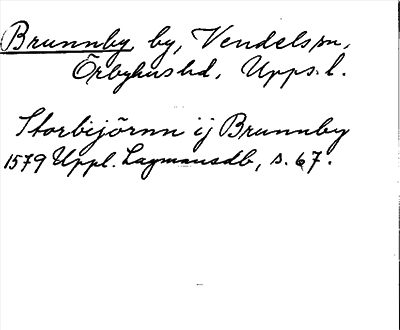 Brunnby by, Vendels sn,
Örbyhus hd, Upps. l.
Storbijörnn ij Brunnby
1579 Uppl. Lagmansdb, s. 67.